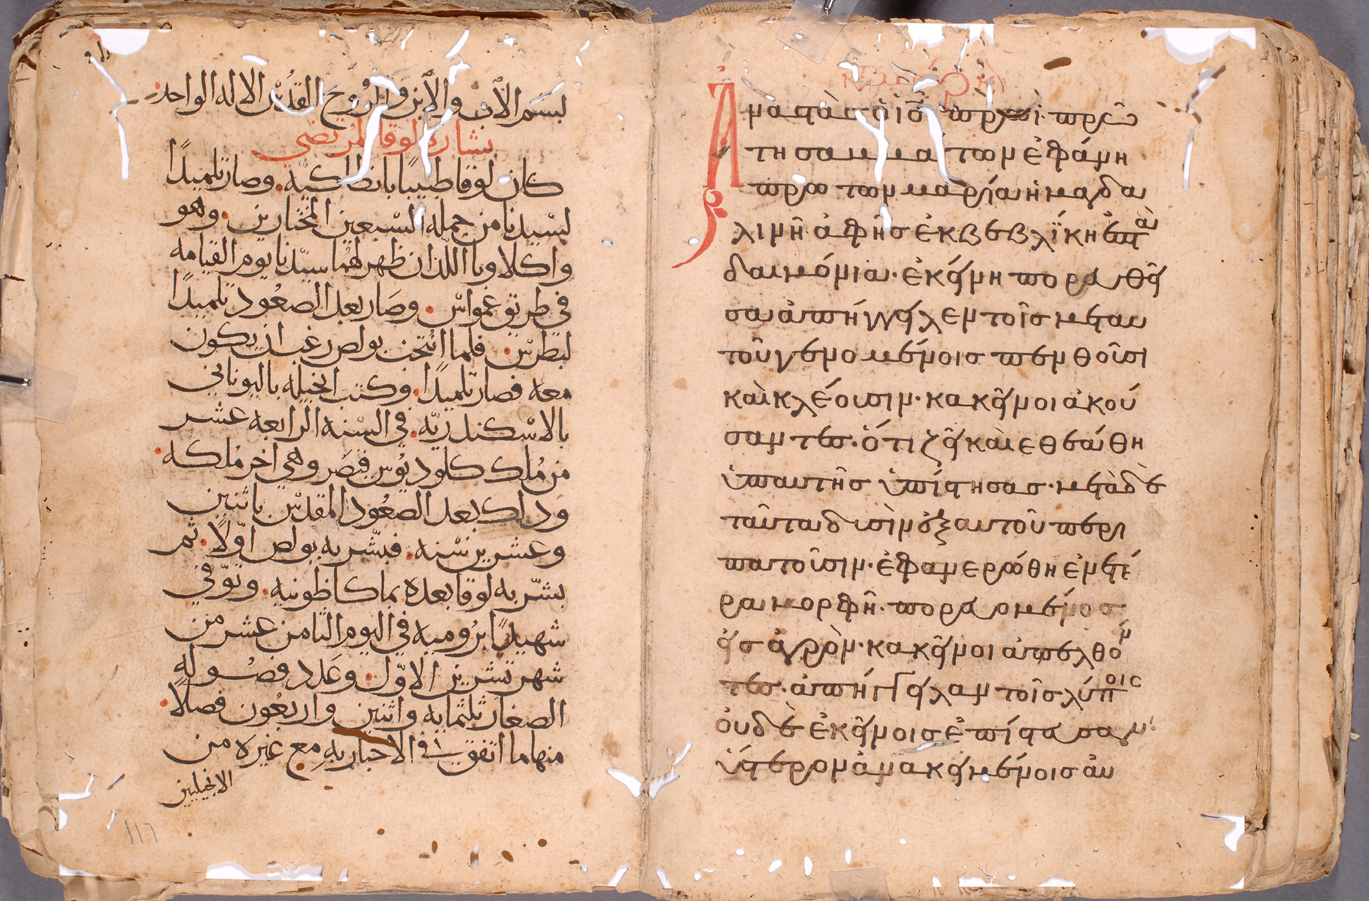 بسم الاب والابن والروح القدس الاله الواحد
بشارة لوقا المرتضي
كان لوقا طبيبًا بانطاكيه. وصار تلميدًا
لسيدنا من جمله السبعين المختارين. وهو
واكلاوبا اللدان ظهر لهما سيدنا يوم القيامه
في طريق عمواس. وصار بعد الصعود تلميدًا
لبطرس. فلما انتخب بولص رغب ان يكون
معه فصار تلميدًا. وكتب انجيله باليوناني
بالاسكندريّه. في السنه الرابعه عشر
من مُلك كلوديوس قيصر وهي اخر مُلكه.
وداك بعد الصعُود المقدس باثنين
وعشرين سنه. فبشر به بولص اوّلًا. ثم
بشّر به لوقا بعده بماكاظونيه. وتوّفي
شهيدًا برُوميه في اليوم الثامن عشر من
شهر تشرين الاوّل. وعدد فصُوله
الصغار ثلثمايه واثنين واربعُون فصلًا.
منها ما اتفق في الاخبار به مع غيره من
الانجيليين
١١٦
ἀναστὰς ὁ ἰς πρωῒ πρώ
τη σαμμάτων ἐφάνη
πρώτων μαρία ἡ μαγδα
λινὴ ἀφῆς ἐκβεβλίκη ἑπτὰ
δαιμόνια· ἐκήνη πορευθῆ
σα ἀπήγγηλεν τοῖς μεταυ
τοῦ γενομένοις πενθοῦσι
καὶ κλέουσιν· κακῆνοι ἀκού
σαντες· ὅτι ζῆ καὶ εθεάθη
ὑπαυτῆς ἠπίστησας· μετὰ δὲ
ταῦτα δυσὶν ἐξ αυτοῦ περι
πατοῦσιν· ἐφανερώθη ἐν ἑτέ
ρα μορφῆ· πορευομένος
ἠς ἀγρὸν· κακῆνοι ἀπελθόν
τες· ἀπήγγηλαν τοῖς λυποις
οὐδὲ ἐκήνοις ἐπίστευσαν·
ὕστερον ἀνακημένοις αυ